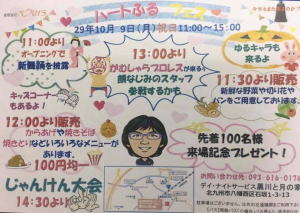 ハートふる フェス
29年10月9日(月)祝日11:00〜15:00
11:00より
オープニングで
新舞踊を披露
13:00より
がむしゃらプロレスが来る!
顔なじみのスタッフ
参戦するかも
ゆるキャラも
来るよ
キッズコーナー
もあるよ!
11:30より販売
新鮮な野菜や切り花や
パンをご用意しております
12:00より販売
からあげや焼きそば
焼きとりなどいろいろなメニューが
あります。
100円均一
先着100名様
来場記念プレゼント!
じゃんけん大会
14:30より
お問い合わせ 093-616-0178
デイ・ナイトサービス黒川と月の家
北九州市八幡西区石坂1-3-13